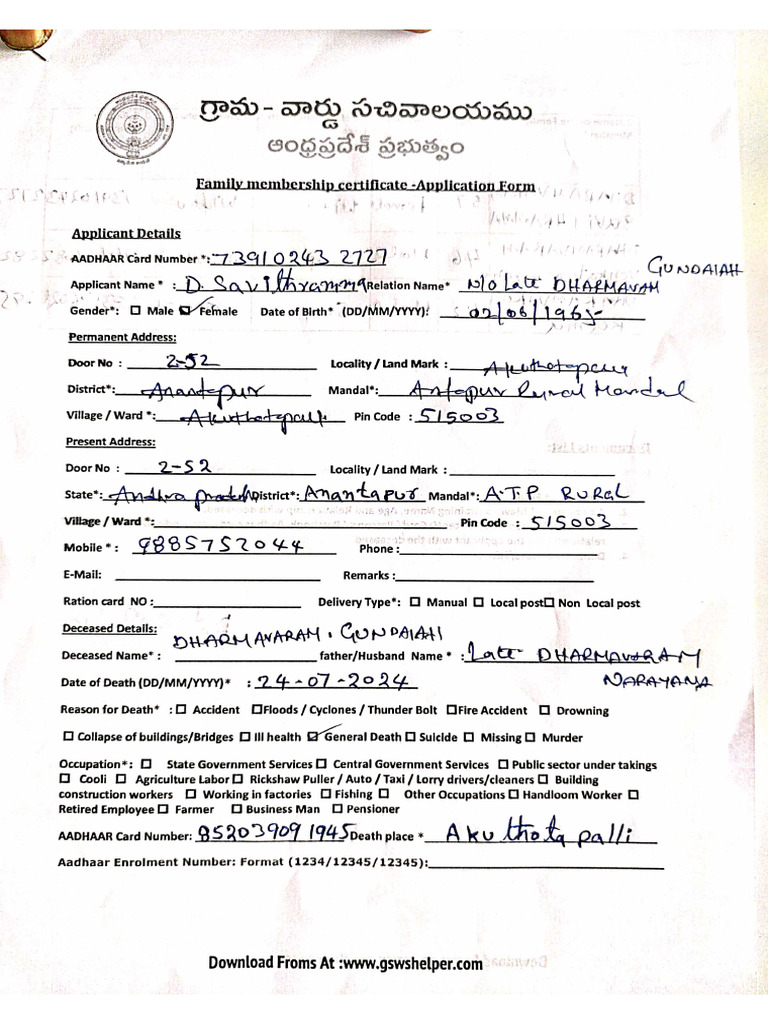 గ్రామ - వార్డు సచివాలయము
ఆంధ్రప్రదేశ్ ప్రభుత్వం
Family membership certificate -Application Form
Applicant Details
AADHAAR Card Number *: 7391 0243 2727
GUNDAIAH
Applicant Name * : D. Savithramma Relation Name* W/O Late DHARMAVAM
Gender*: ☐ Male ☑ Female Date of Birth* (DD/MM/YYYY): 02/06/1965
Permanent Address:
Door No : 2-52 Locality / Land Mark : Akuthotapalli
District*: Anantapur Mandal*: Antapur Rural Mandal
Village / Ward *: Akuthotapalli Pin Code : 515003
Present Address:
Door No : 2-52 Locality / Land Mark :
State*: Andhra pradesh District*: Anantapur Mandal*: A.T.P RURAL
Village / Ward *: Pin Code : 515003
Mobile * : 9885752044 Phone :
E-Mail: Remarks :
Ration card NO : Delivery Type*: ☐ Manual ☐ Local post ☐ Non Local post
Deceased Details:
DHARMAVARAM. GUNDAIAH
Deceased Name* : father/Husband Name * : Late DHARMAVARAM
NARAYANA
Date of Death (DD/MM/YYYY)* : 24-07-2024
Reason for Death* : ☐ Accident ☐ Floods / Cyclones / Thunder Bolt ☐ Fire Accident ☐ Drowning
☐ Collapse of buildings/Bridges ☐ Ill health ☑ General Death ☐ Suicide ☐ Missing ☐ Murder
Occupation*: ☐ State Government Services ☐ Central Government Services ☐ Public sector under takings
☐ Cooli ☐ Agriculture Labor ☐ Rickshaw Puller / Auto / Taxi / Lorry drivers/cleaners ☐ Building
construction workers ☐ Working in factories ☐ Fishing ☐ Other Occupations ☐ Handloom Worker ☐
Retired Employee ☐ Farmer ☐ Business Man ☐ Pensioner
AADHAAR Card Number: 852039091945 Death place * Akuthota palli
Aadhaar Enrolment Number: Format (1234/12345/12345):
Download Froms At :www.gswshelper.com